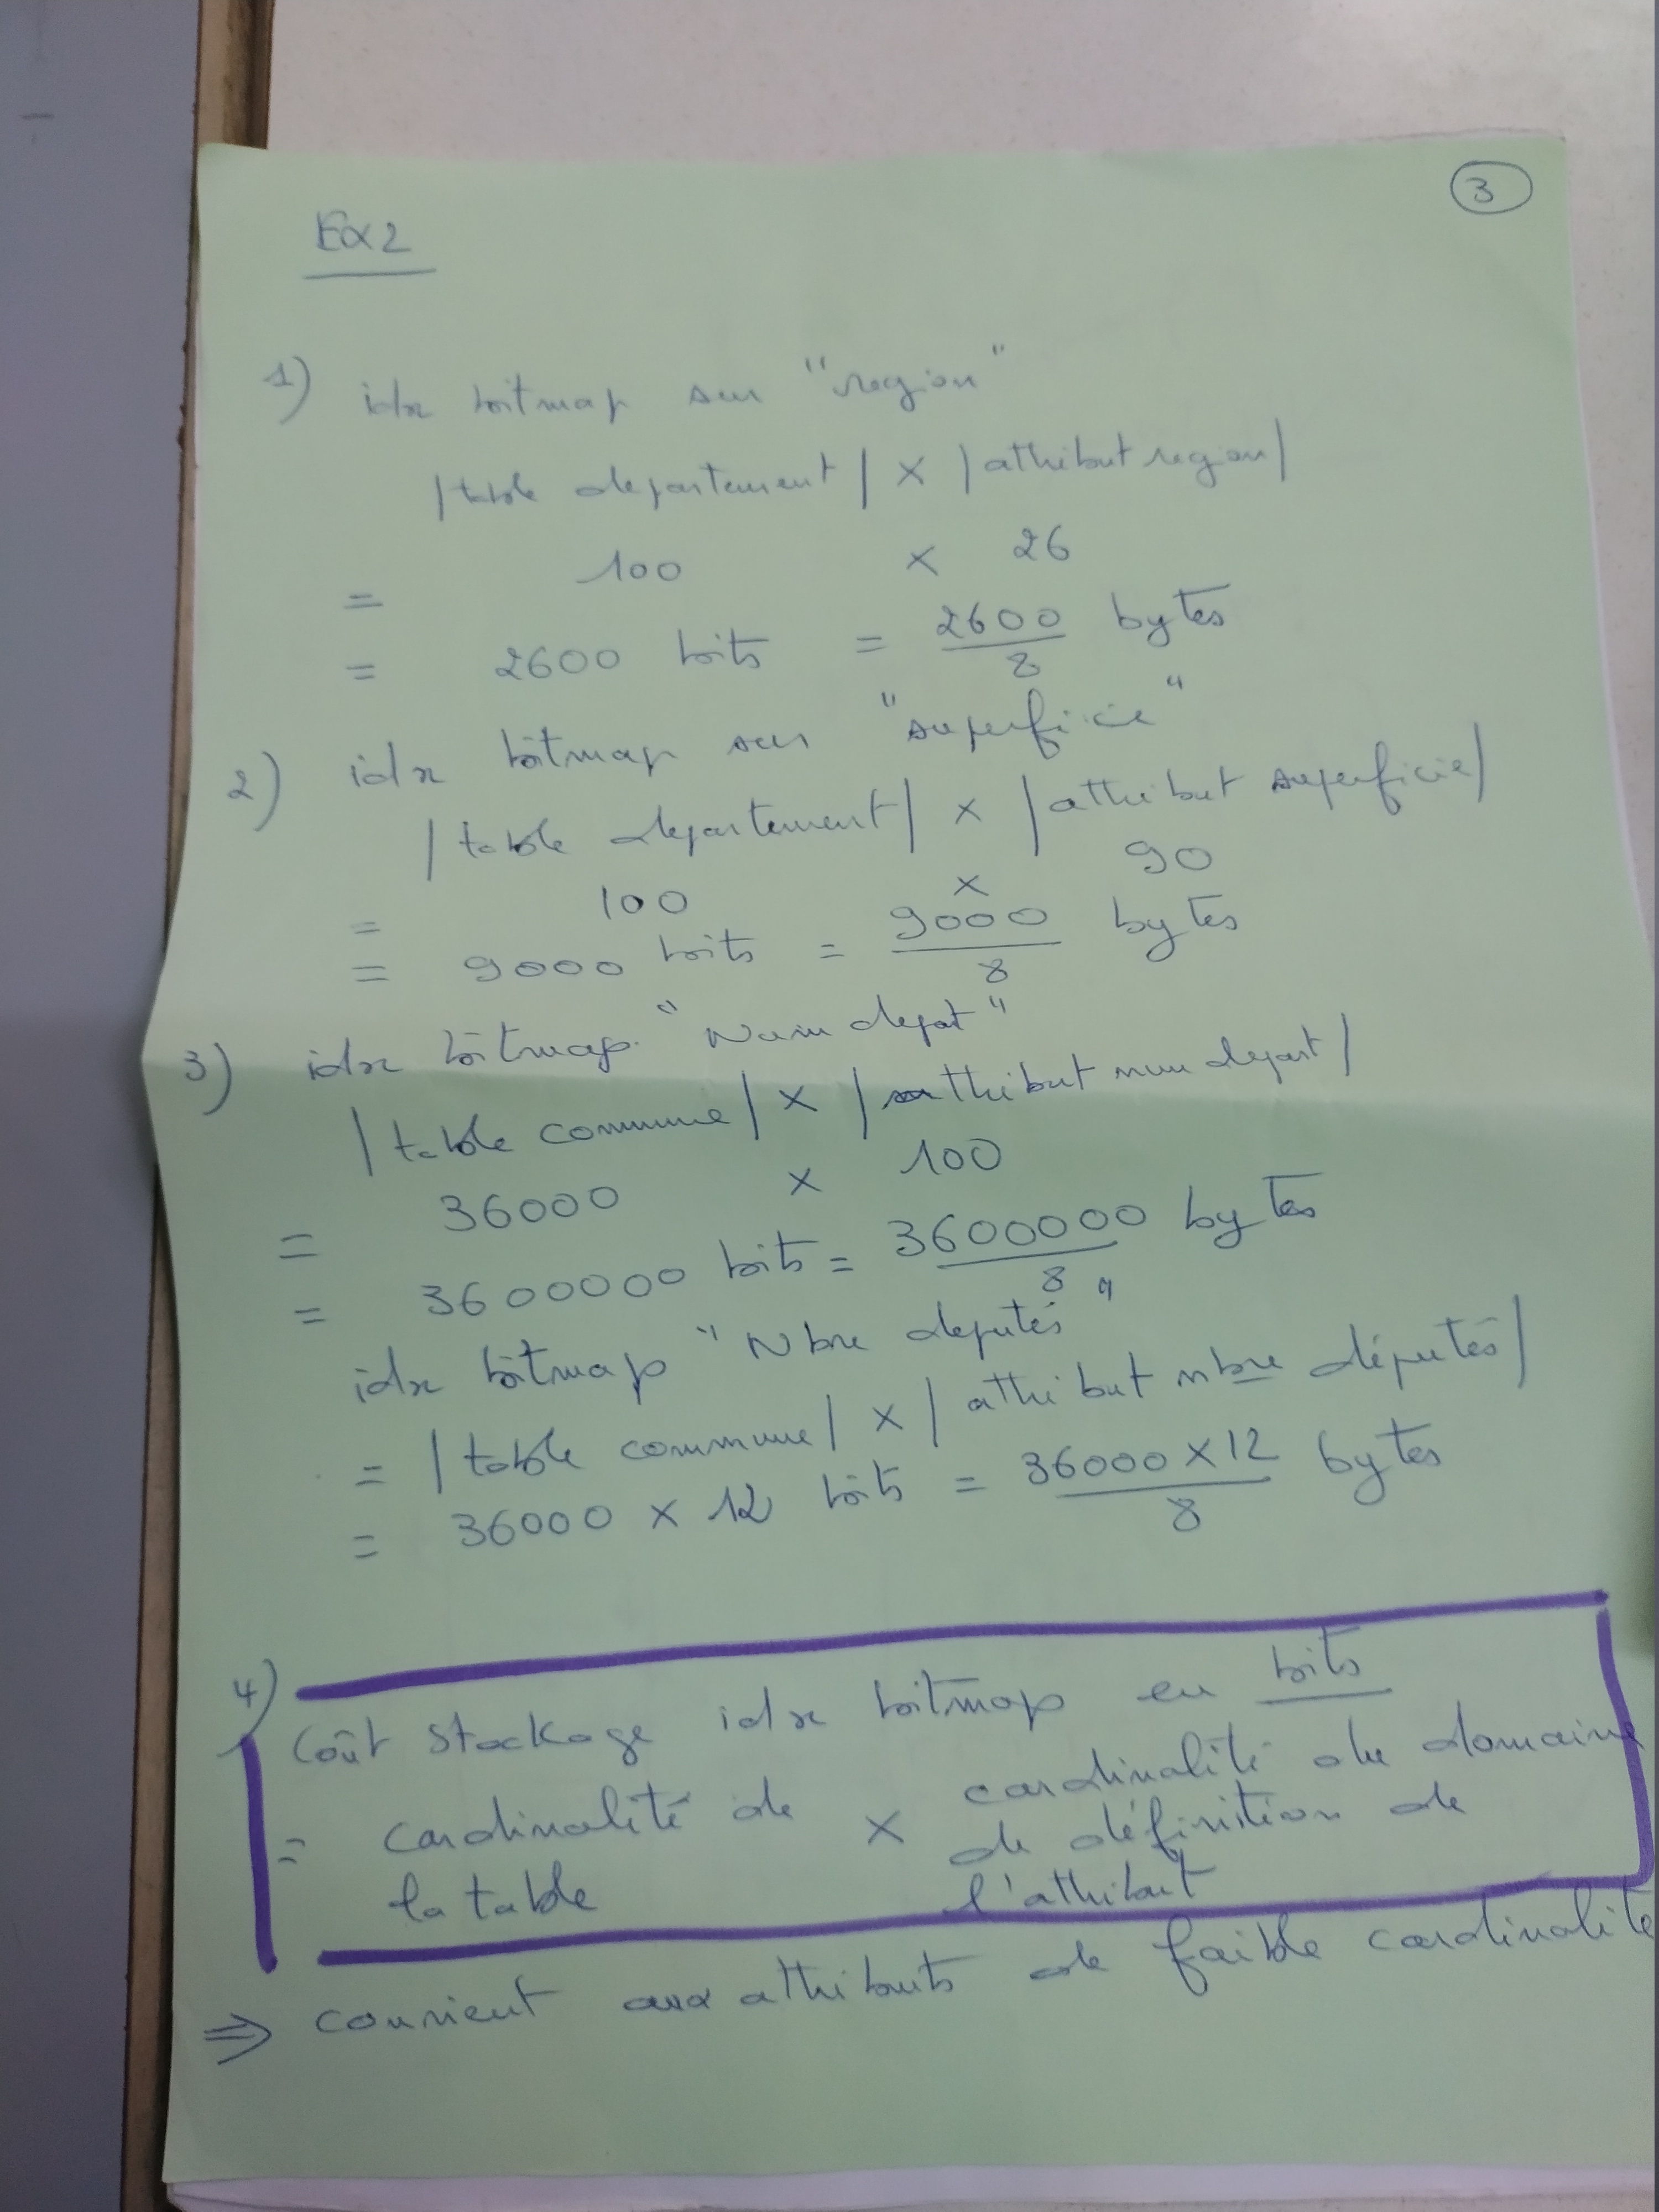 3
Ex2
1) idx bitmap sur "region"
|table departement| x |attribut region|
= 100 x 26
= 2600 bits = 2600/8 bytes
2) idx bitmap sur "superficie"
|table departement| x |attribut superficie|
= 100 x 90
= 9000 bits = 9000/8 bytes
3) idx bitmap "Num depat"
|table commune| x |attribut num depart|
= 36000 x 100
= 3600000 bits = 3600000/8 bytes
idx bitmap "Nbre deputés"
= |table commune| x |attribut nbre députés|
= 36000 x 12 bits = 36000x12/8 bytes
4) Coût stockage idx bitmap en bits
= cardinalité de la table x cardinalité du domaine de définition de l'attribut
⇒ convient aux attributs de faible cardinalité